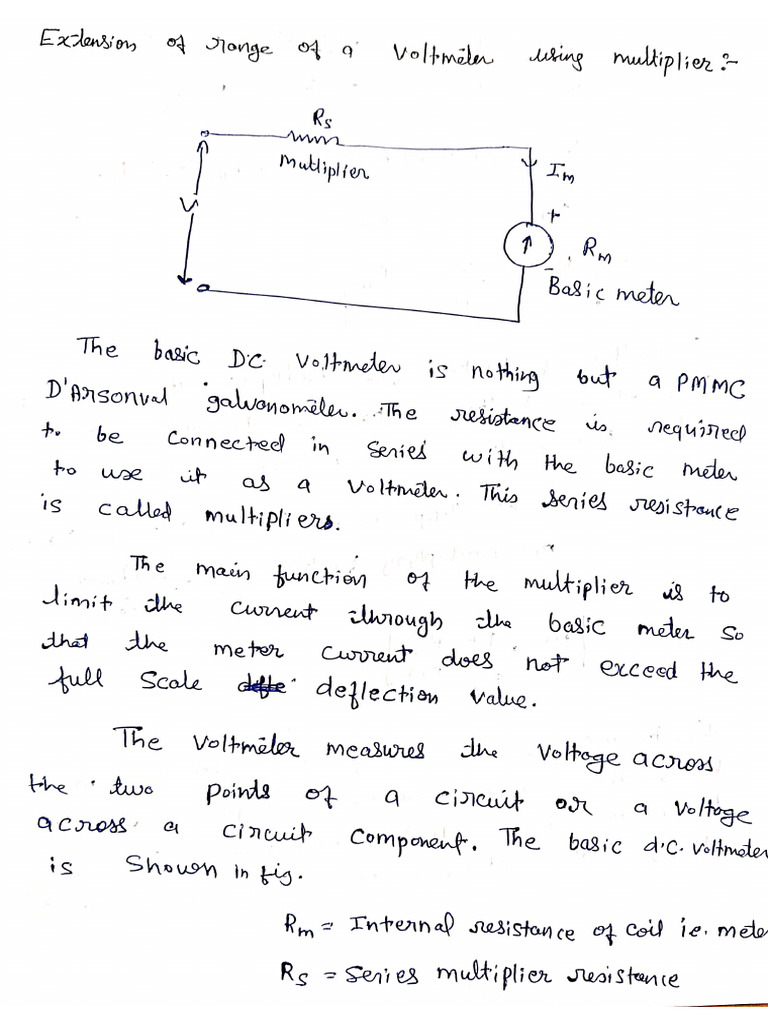 Extension of range of a voltmeter using multiplier:-
Rs
Mutliplier
Im
+
V
Rm
-
Basic meter
The basic D.C. Voltmeter is nothing but a PMMC
D'Arsonval galvonometer. The resistance is required
to be connected in series with the basic meter
to use it as a voltmeter. This series resistance
is called multipliers.
The main function of the multiplier is to
limit the current through the basic meter so
that the meter current does not exceed the
full scale deflection value.
The voltmeter measures the voltage across
the two points of a circuit or a voltage
across a circuit component. The basic d.c. voltmeter
is shown in fig.
Rm = Internal resistance of coil ie. mete
Rs = Series multiplier resistance